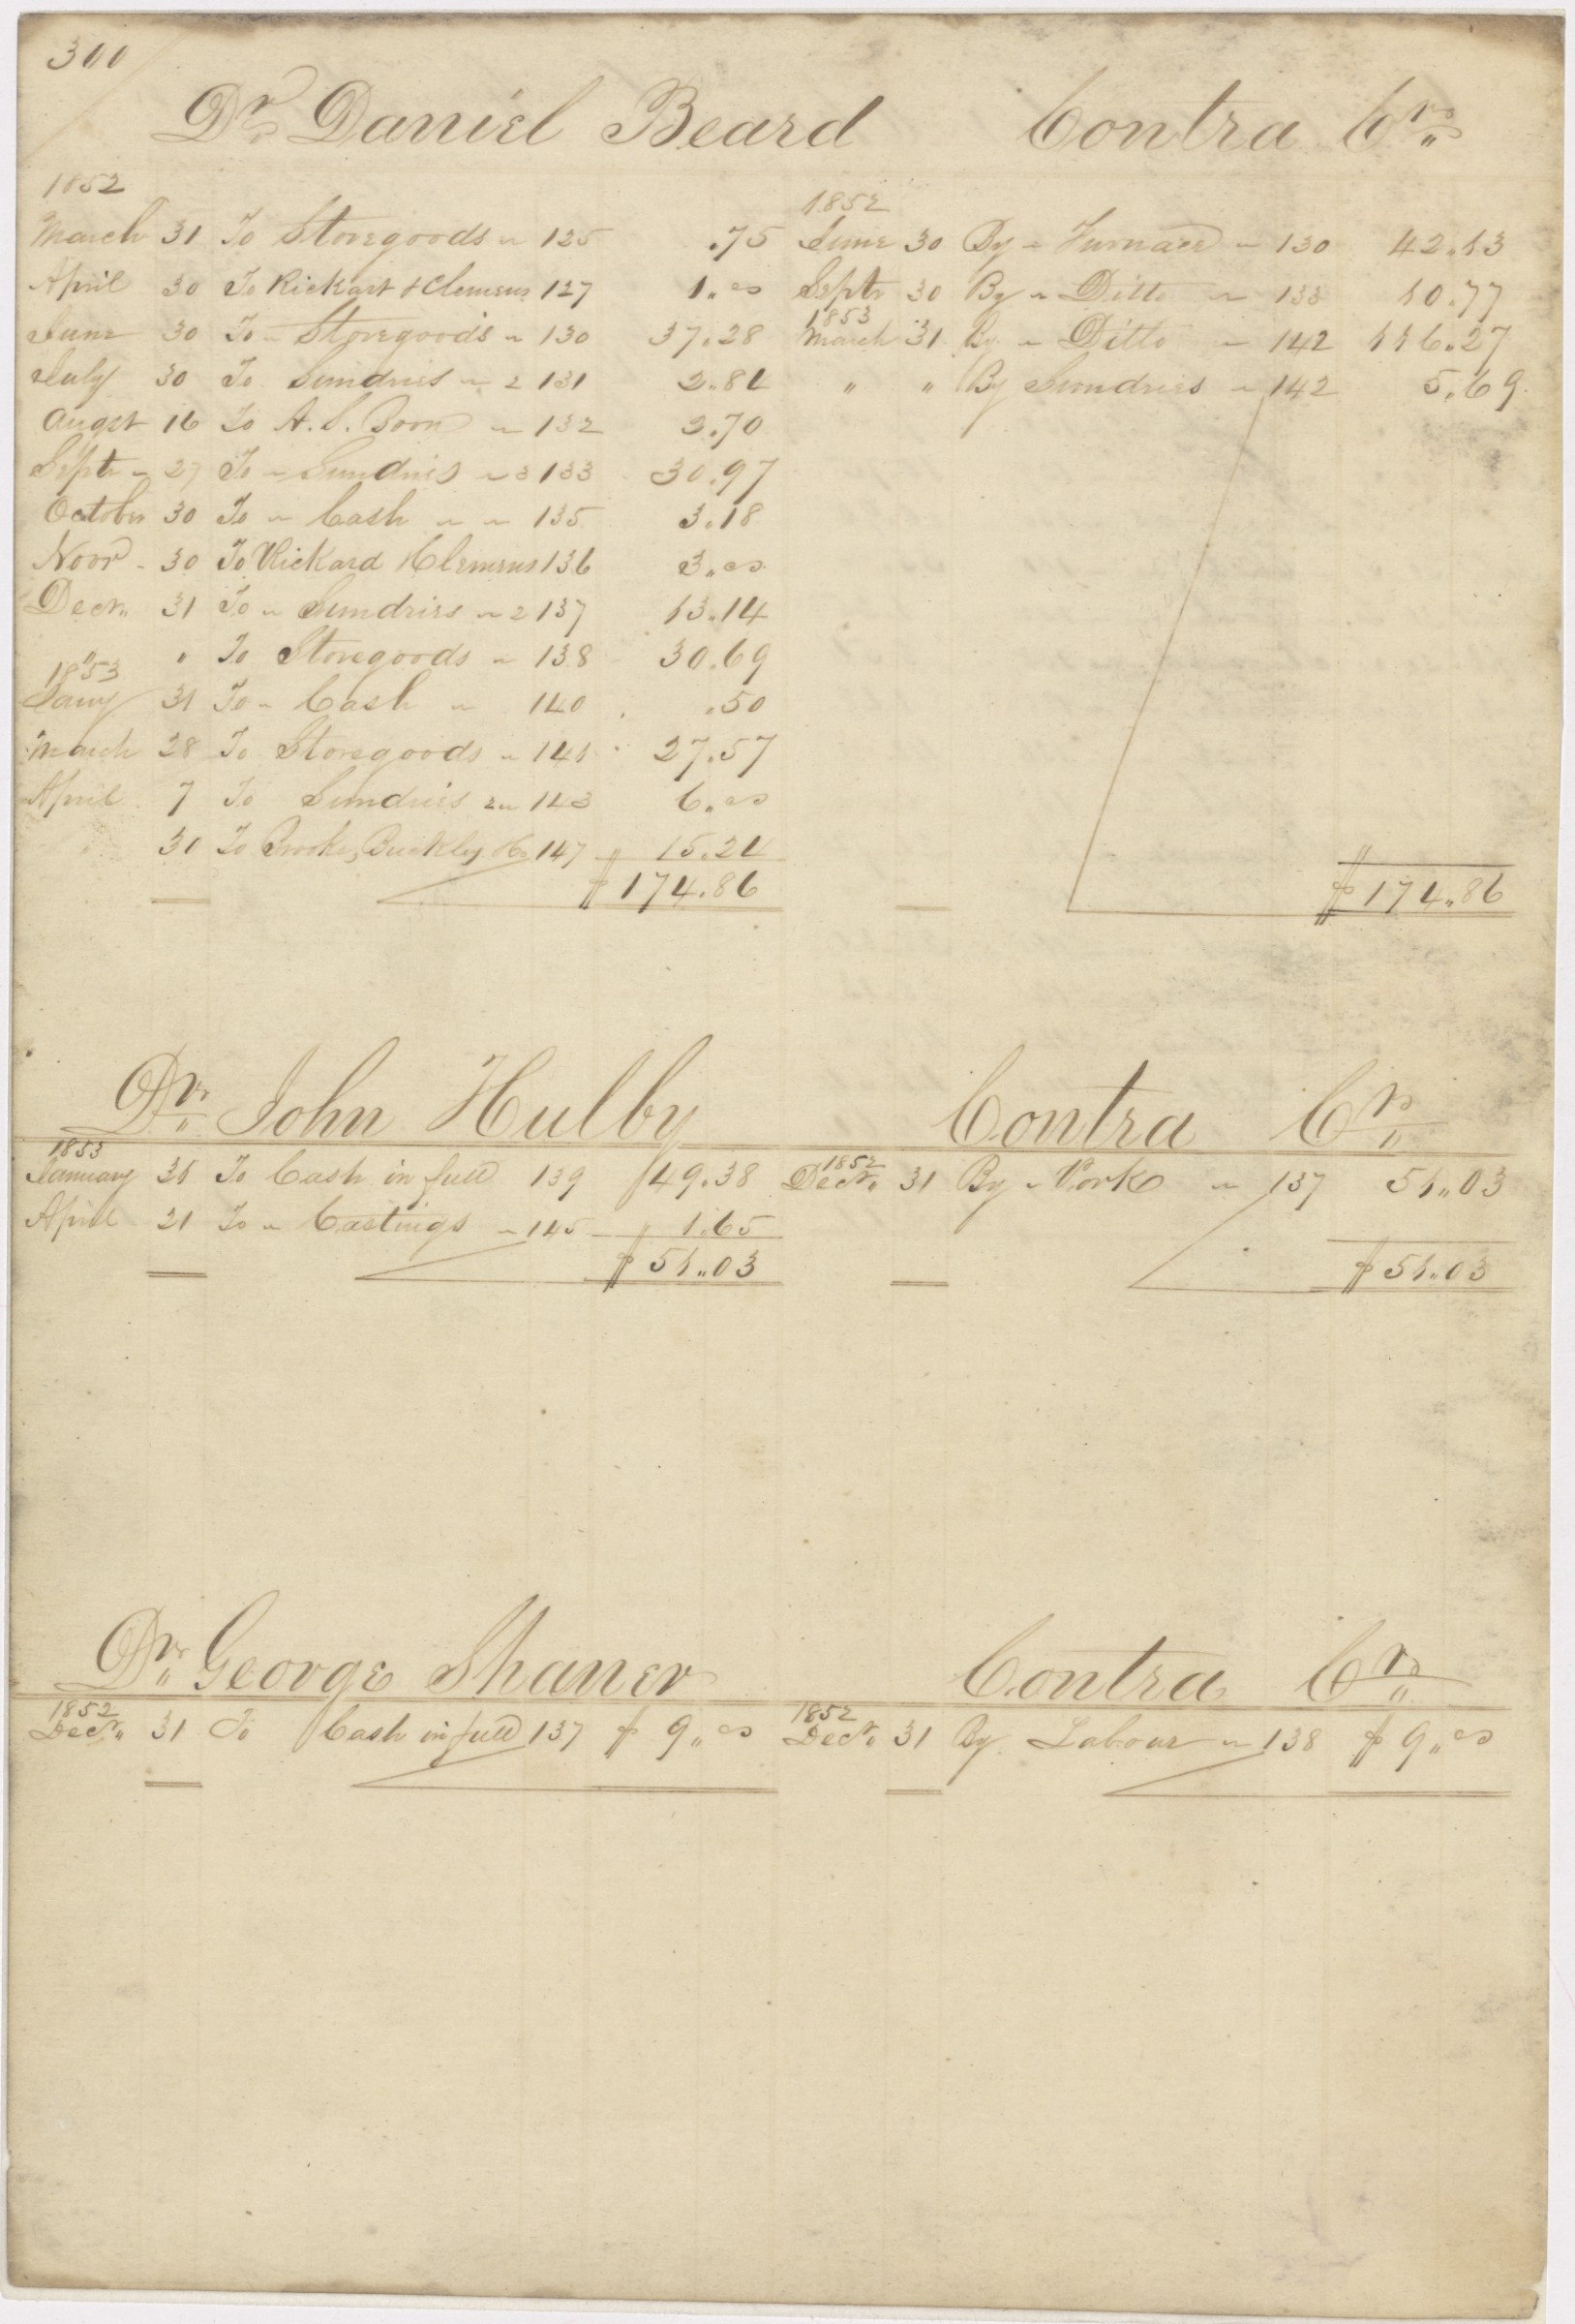 300
Dr Daniel Beard Contra Cr
1852 1852
March 31 To Storegoods " 125 .75 June 30 By " Furnace " 130 42.13
April 30 To Rickart & Clemens 127 1.00 Septr 30 By " Ditto " 133 10.77
1853
June 30 To " Storegoods " 130 37.28 March 31 By " Ditto " 142 116.27
July 30 To Sundries " 2 131 2.84 " " By Sundries " 142 5.69
Augst 16 To A. S. Boon " 132 2.70
Septr " 27 To " Sundries " 3 133 30.97
October 30 To " Cash " " 135 3.18
Novr - 30 To Rickard & Clemens 136 3.00
Decr 31 To " Sundries " 2 137 13.14
" " To Storegoods " 138 30.69
1853
Jany 31 To " Cash " 140 .50
March 28 To Storegoods " 141 27.57
April 7 To Sundries 2 " 143 6.00
30 To Brooke, Buckley & Co 147 15.24
$174.86 $174.86
Dr John Hulby Contra Cr
1853 1852
January 31 To Cash in full 139 49.38 Decr 31 By " Work " 137 51.03
April 21 To " Castings " 145 1.65
$51.03 $51.03
Dr George Shaner Contra Cr
1852 1852
Decr 31 To Cash in full 137 $9.00 Decr 31 By Labour " 138 $9.00